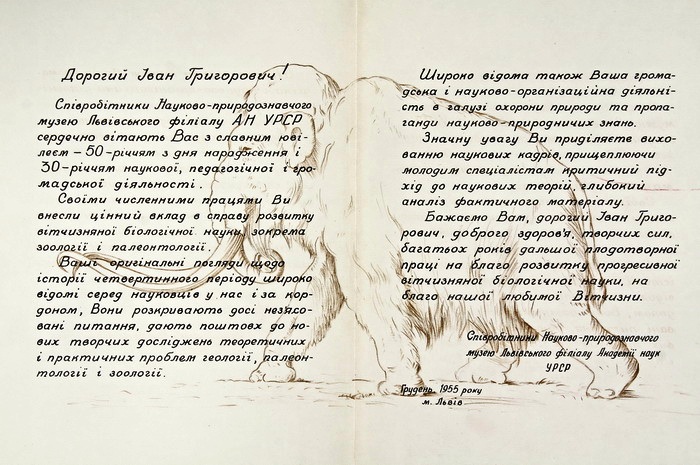 Дорогий Іван Григорович!
Співробітники Науково-природознавчого
музею Львівського філіалу АН УРСР
сердечно вітають Вас з славним юві-
леєм – 50-річчям з дня народження і
30-річчям наукової, педагогічної і гро-
мадської діяльності.
Своїми численними працями Ви
внесли цінний вклад в справу розвитку
вітчизняної біологічної науки, зокрема
зоології і палеонтології.
Ваші оригінальні погляди щодо
історії четвертинного періоду широко
відомі серед науковців у нас і за кор-
доном, Вони розкривають досі нез'ясо-
вані питання, дають поштовх до но-
вих творчих досліджень теоретичних
і практичних проблем геології, палеон-
тології і зоології.
Широко відома також Ваша грома-
дська і науково-організаційна діяльні-
сть в галузі охорони природи та пропа-
ганди науково-природничих знань.
Значну увагу Ви приділяєте вихо-
ванню наукових кадрів, прищеплюючи
молодим спеціалістам критичний під-
хід до наукових теорій, глибокий
аналіз фактичного матеріалу.
Бажаємо Вам, дорогий Іван Григо-
рович, доброго здоров'я, творчих сил,
багатьох років дальшої плодотворної
праці на благо розвитку прогресивної
вітчизняної біологічної науки, на
благо нашої любимої Вітчизни.
Співробітники Науково-природознавчого
музею Львівського філіалу Академії наук
УРСР
Грудень, 1955 року
м. Львів